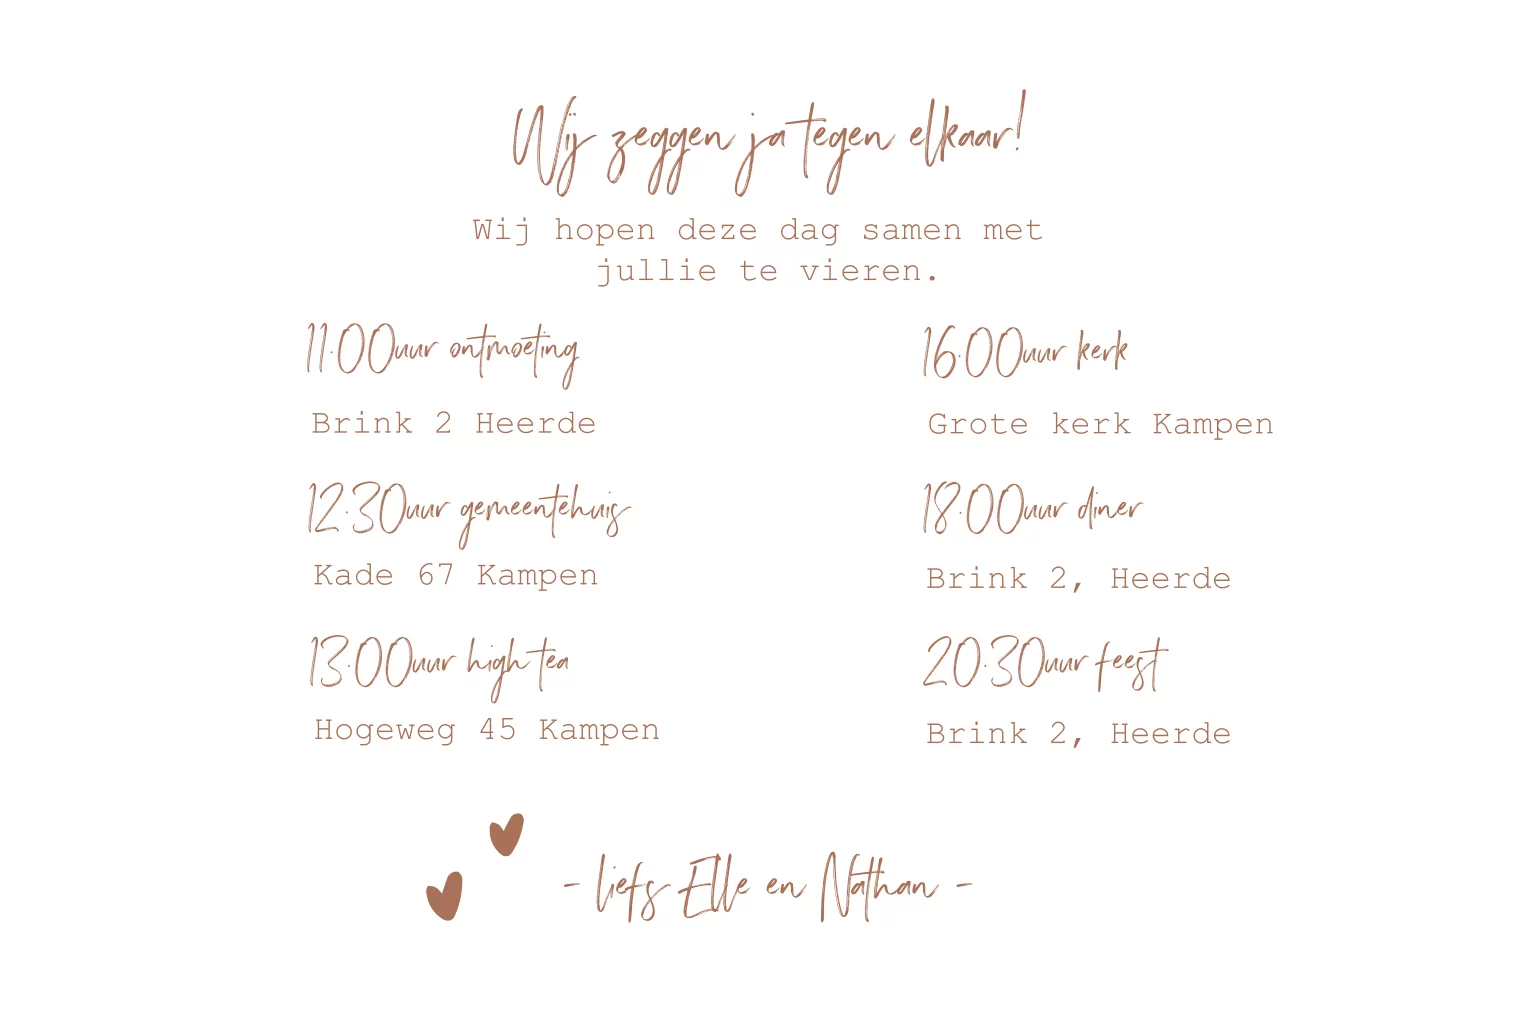 Wij zeggen ja tegen elkaar!
Wij hopen deze dag samen met
jullie te vieren.
11.00uur ontmoeting
Brink 2 Heerde
12.30uur gemeentehuis
Kade 67 Kampen
13.00uur high tea
Hogeweg 45 Kampen
16.00uur kerk
Grote kerk Kampen
18.00uur diner
Brink 2, Heerde
20.30uur feest
Brink 2, Heerde
- liefs Elle en Nathan -